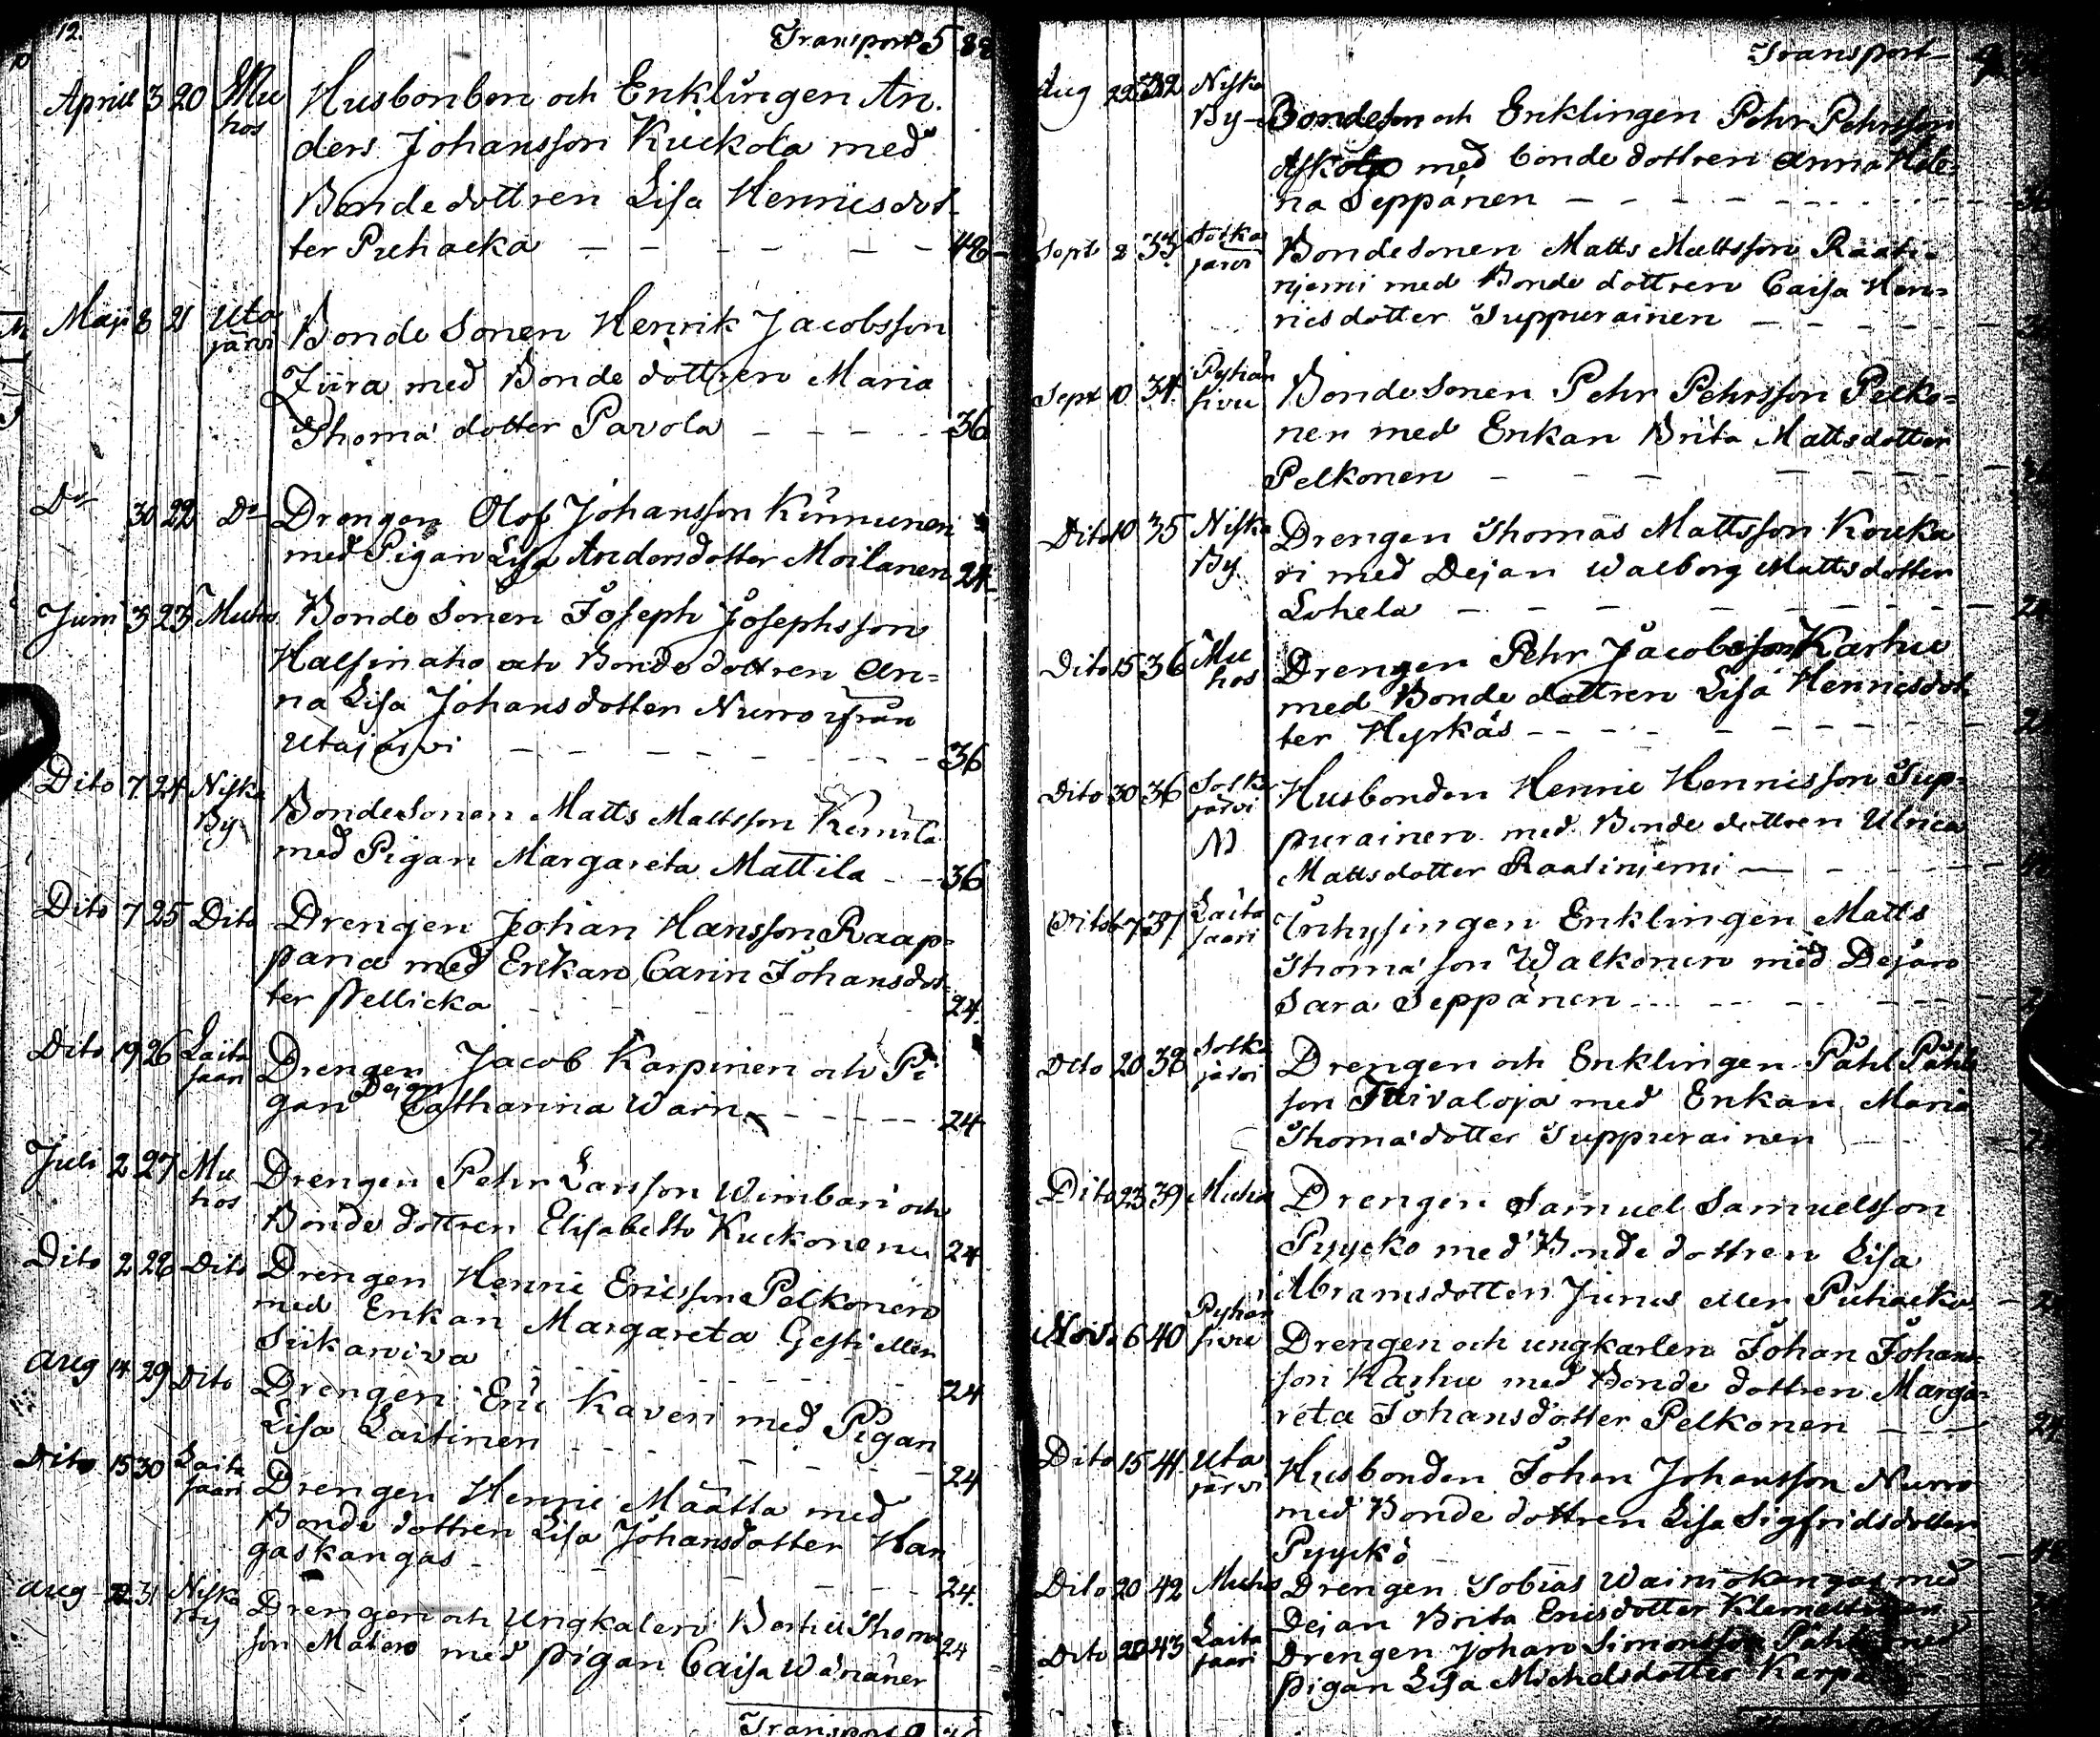 12.
Transport 5 88
Aprill 3 20 Mu Husbonden och Enklingen An-
hos ders Johansson Kuckola med
Bondedottren Lisa Hennisdot-
ter Puhacka — — — — — 48
Maji 8 21 Uta Bonde Sonen Henrik Jacobsson
järvi Ziira med Bonde dottren Maria
Thoma dotter Pavola — — — 36
Do 30 22 Do Drengen Olof Johansson Kinnunen
med Pigan Lisa Andersdotter Moilanen 24
Juni 3 23 Muhos Bonde Sonen Joseph Josephsson
Halsinaho och Bonde dottren An=
na Lisa Johansdotter Nurro ifrån
Utajärvi — — — — — 36
Dito 7 24 Niska Bondesonen Matts Mattsson
By med Pigan Margareta Mattila — 36
Dito 7 25 Dito Drengen Johan Hansson Raap=
pana med Enkan Carin Johansdot=
ter Pellicka 24.
Dito 19 26 Laita Drengen Jacob Karpinen och Pi
saari gan Dejan Catharina Warn — — — 24
Juli 2 27 Mu Drengen Pehr Larsson Wimbari och
hos Bonde dottren Elisabeth Kuckonen 24
Dito 2 28 Dito Drengen Henric Ericsson Pelkonen
med Enkan Margareta Gesti eller
Siikaviva 24
Aug 14 29 Dito Drengen Eric Kaveri med Pigan
Lisa Laitinen — — — 24
Dito 15 30 Laita Drengen Henric Määtta med
saari Bonde dottren Lisa Johansdotter Han
gaskangas — — — 24.
Aug 22 31 Niska Drengen och Ungkalen Bertil Thoma
By son Matero med Pigan Caisa Wänänen 24
Transport 9
Transport 9
Aug 22 32 Niska
By Bondeson och Enklingen Pehr Pehrsson
med bonde dottren Anna Hele=
na Seppänen — — — —
Sept 2 33 Sotka Bondesonen Matts Mattsson Raati=
järvi njemi med Bonde dottren Caisa Hen=
ricsdotter Suppurainen — — —
Sept 10 34 Pyhän Bondesonen Pehr Pehrsson Pelko=
sivu nen med Enkan Brita Mattsdotter
Pelkonen — — —
Dito 10 35 Niska Drengen Thomas Mattsson Kouka
By ri med Dejan Walborg Mattsdotter
Lohela — — —
Dito 15 36 Mu Drengen Pehr Jacobsson Karhu
hos med Bonde dottren Lisa Hennesdot
ter Hyrkäs — — —
Dito 30 36 Sotka Husbonden Henric Henricsson Sup=
järvi purainen med Bonde dottren Ulrica
N Mattsdotter Raatiniemi — —
Dito 37 Laita Inhysingen Enklingen Matts
saari Thoma son Walkonen med Dejan
Sara Seppänen — — —
Dito 20 38 Sotka Drengen och Enklingen Påhl Påhls
järvi son Taivaloja med Enkan Maria
Thomadotter Suppurainen
Dito 23 39 Muhos Drengen Samuel Samuelsson
Pyycko med Bonde dottren Lisa
Abramsdotter Junes eller Puhacka
Nov. 6 40 Pyhän Drengen och ungkarlen Johan Johans=
sivu son Karhu med Bonde dottren Marga
reta Johansdotter Pelkonen — — 24
Dito 15 41 Uta Husbonden Johan Johansson Nurro
järvi med Bonde dottren Lisa Sigfridsdotter
Pyyckö
Dito 20 42 Muhos Drengen Tobias Wainiokangas med
Dejan Brita Ericsdotter
Dito 20 43 Laita Drengen Johan Simonsson med
saari Pigan Lisa Michelsdotter